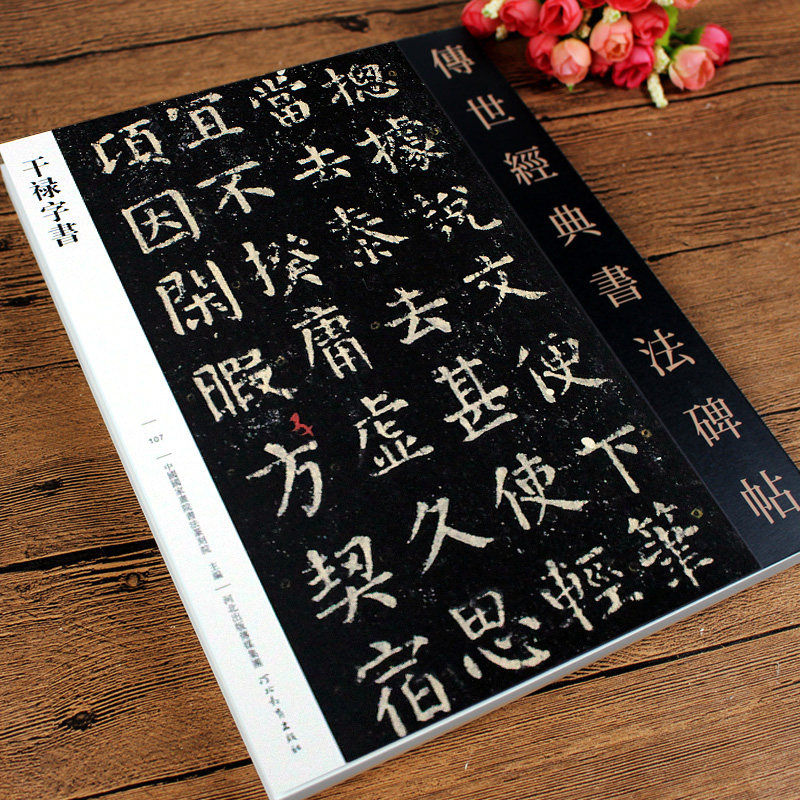 傳世經典書法碑帖
摠據說文便下筆
當去泰去甚使輕
宜不揆庸虛久思
頃因閑暇方契宿
干禄字書
107
中國國家畫院書法篆刻院 主編
河北出版傳媒集團 河北教育出版社